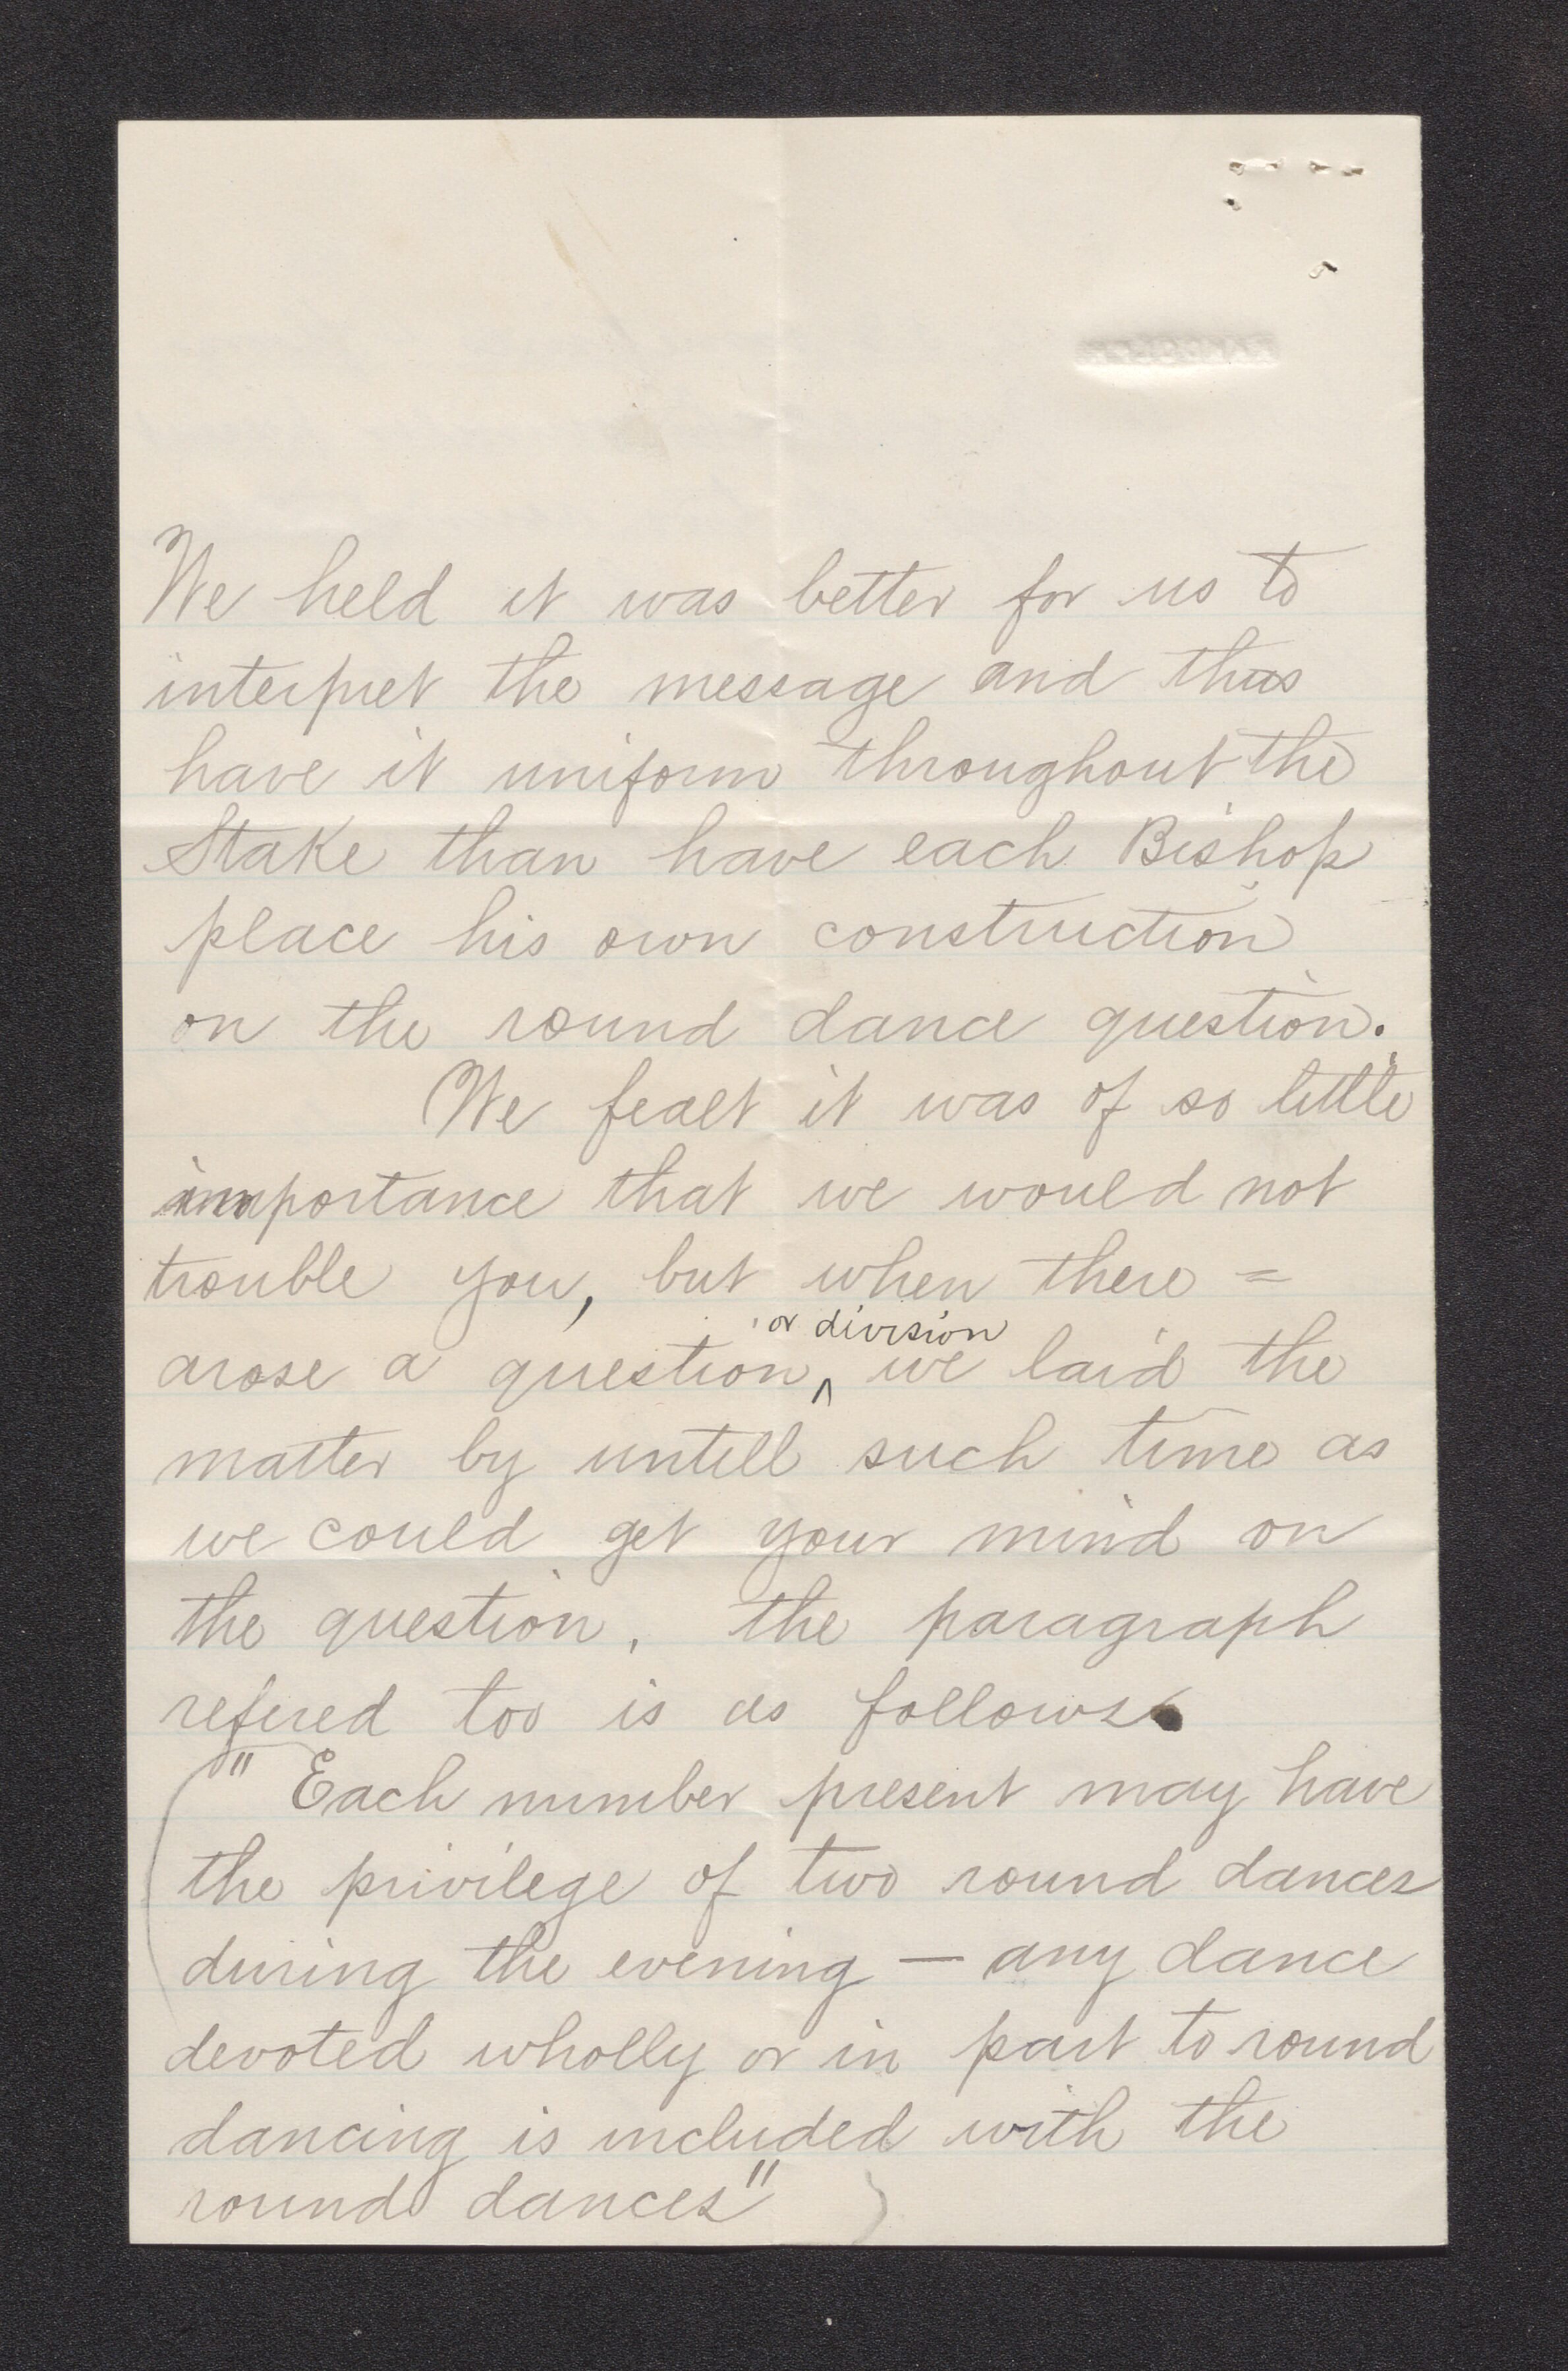 We held it was better for us to
interpret the message and thus
have it uniform throughout the
Stake than have each Bishop
place his own construction
on the round dance question.
We fealt it was of so little
importance that we would not
trouble you, but when there =
arose a question, ^ or division we laid the
matter by untill such time as
we could get your mind on
the question. the paragraph
refered too is as follows.
(" Each number present may have
the privilege of two round dances
during the evening — any dance
devoted wholly or in part to round
dancing is included with the
round dances" )